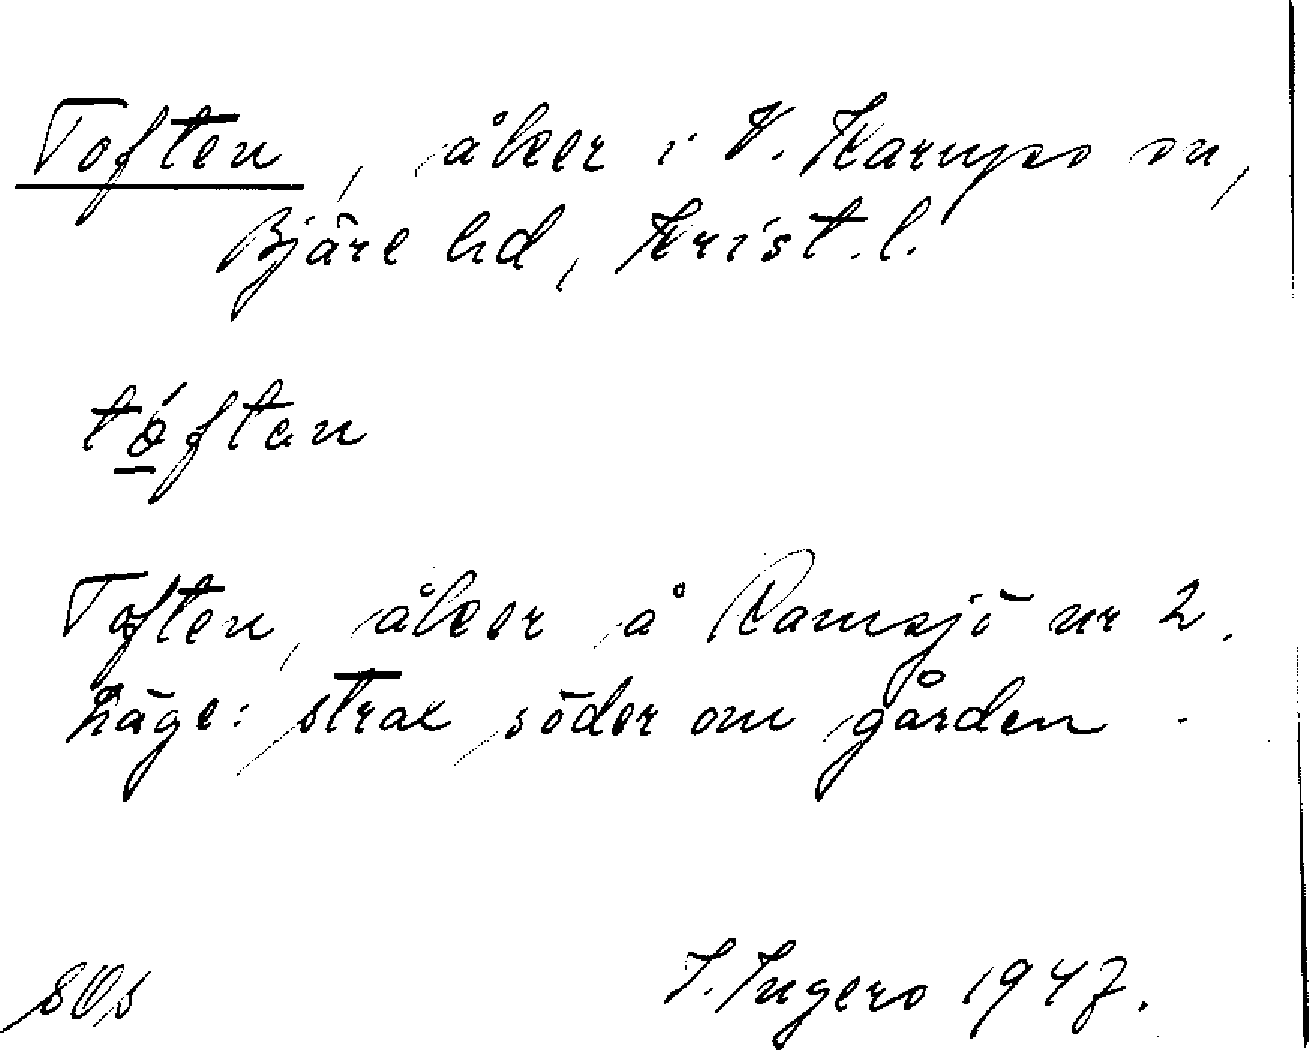 Toften, åker i V. Karups sn,
Bjäre hd, Krist. l.
tóftan
Toften, åker å Ramsjö nr 2.
Läge: strax söder om gården.
I. Ingers 1947.